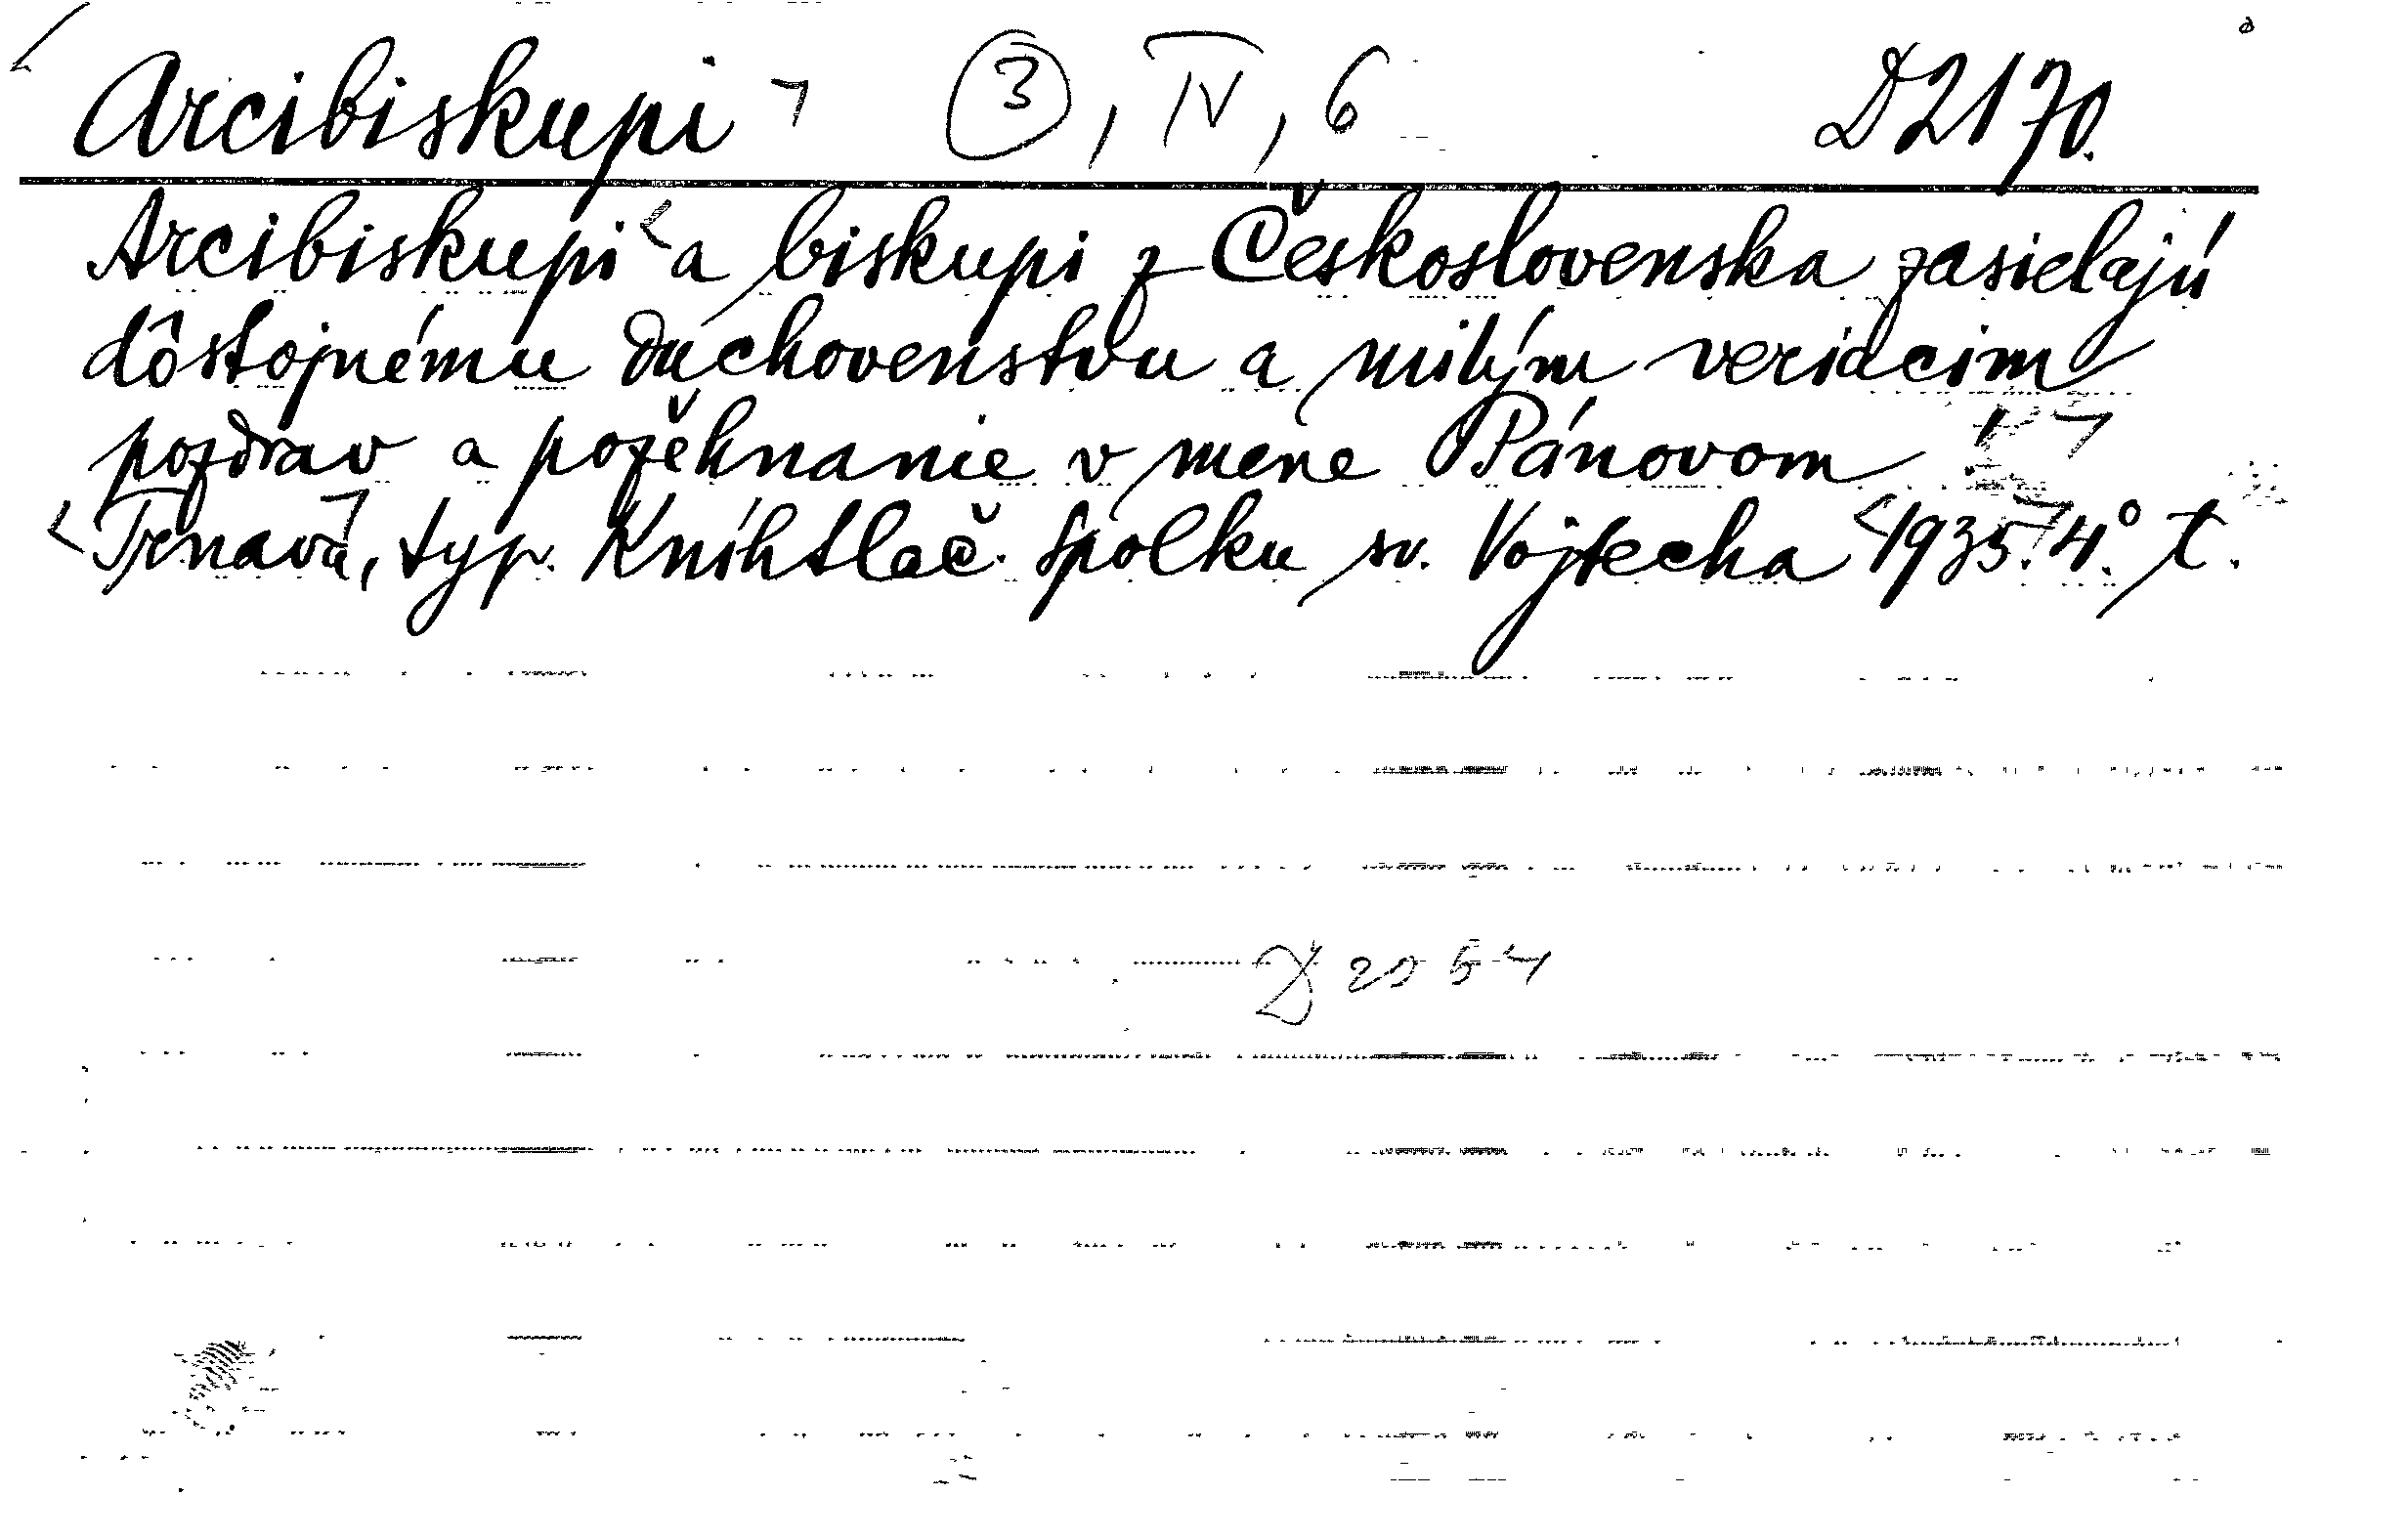 Arcibiskupi ③, IV, 6 D2170.
Arcibiskupi a biskupi z Československa zasielajú
dôstojnému duchovenstvu a milým veriacim
pozdrav a požehnanie v mene Pánovom!
Trnava, typ. Kníhtlač. Spolku sv. Vojtecha 1935. 4° t.